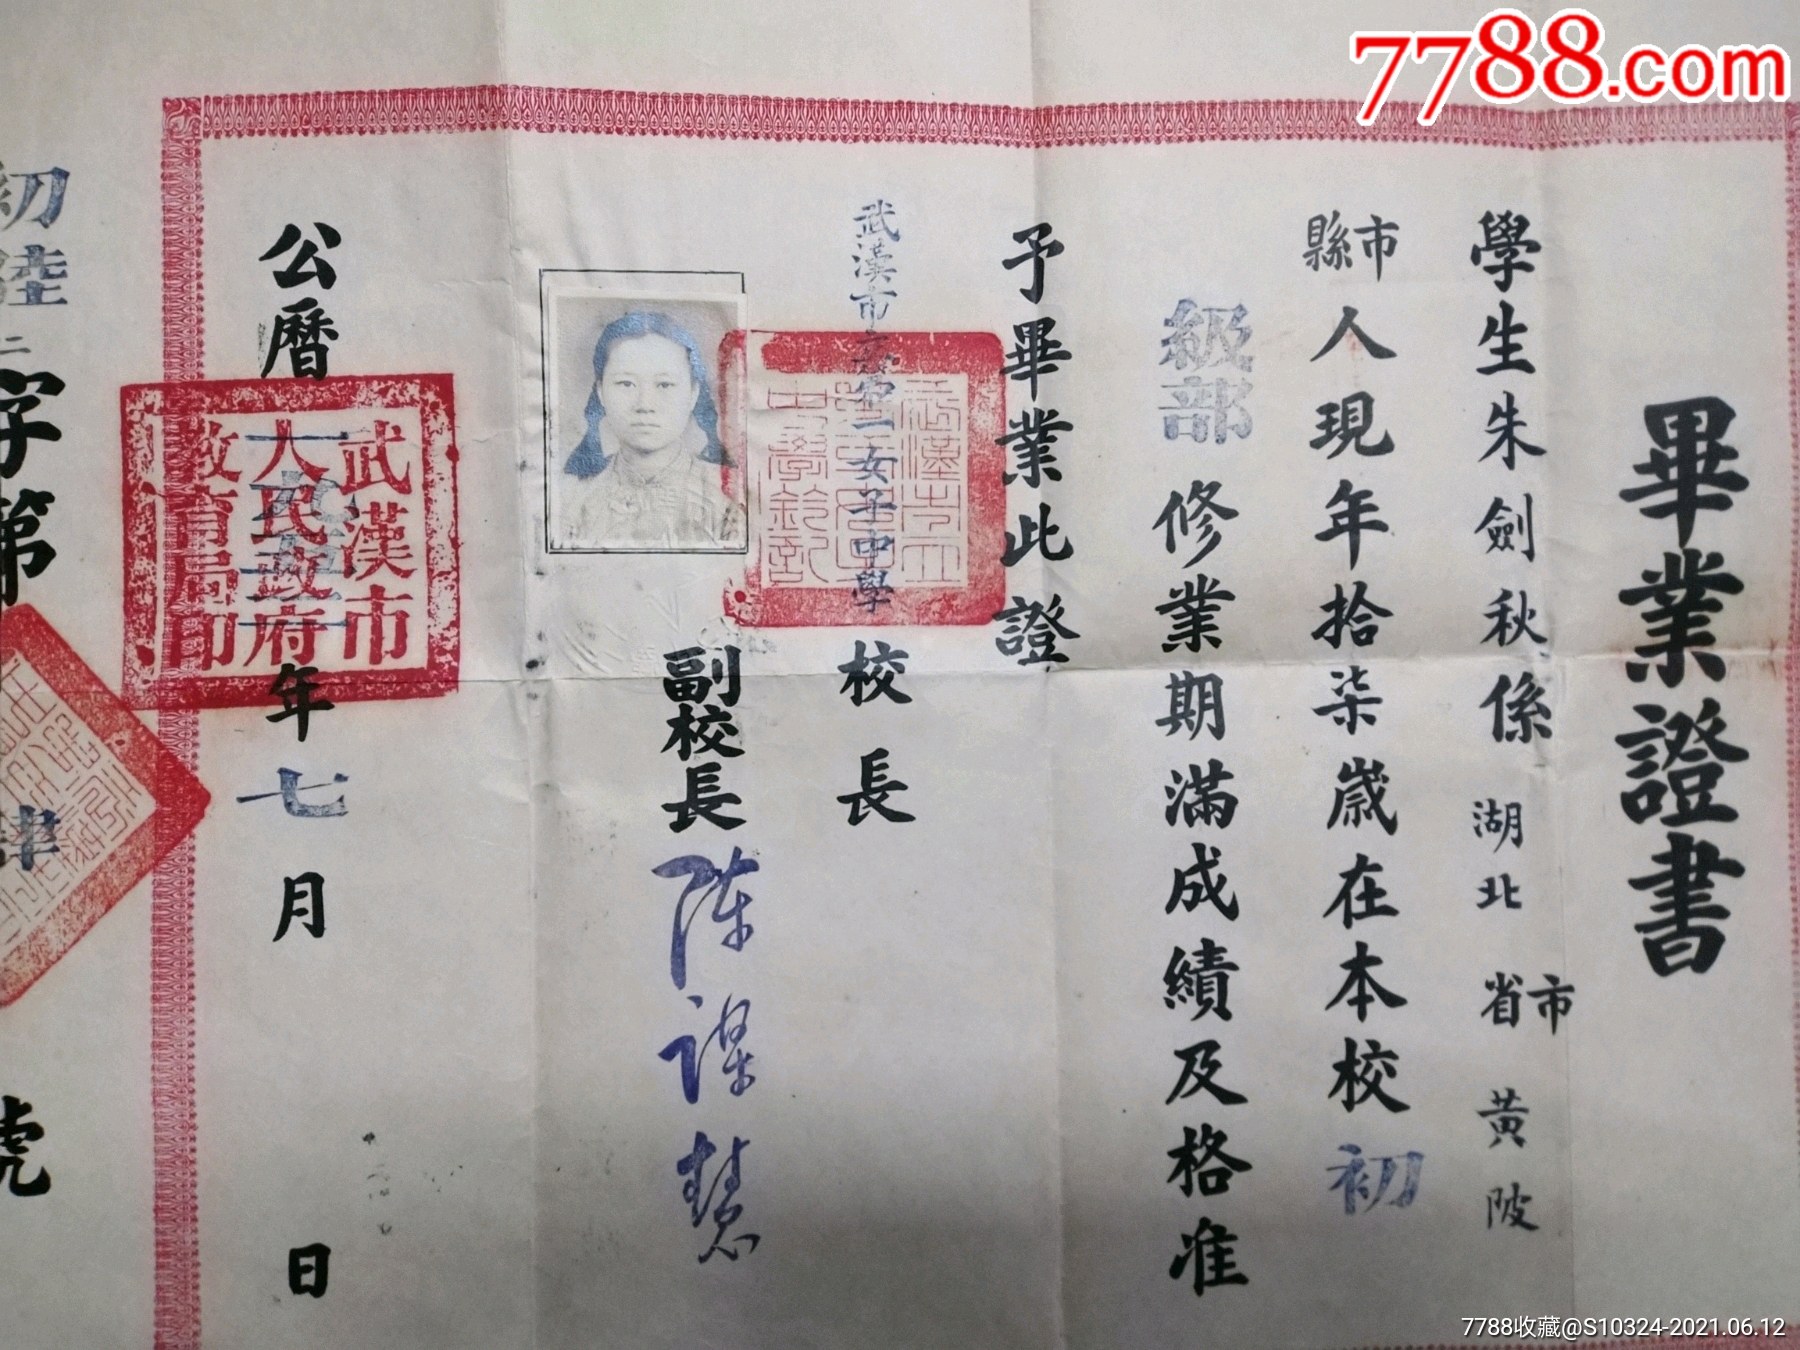 7788.com
畢業證書
學生朱劍秋係湖北省市黃陂
縣市人現年拾柒歲在本校初
級部修業期滿成績及格准
予畢業此證
武漢市立第一女子中學校長
副校長陈謨慧
公曆
年七月 日
武漢市
人民政府
教育局印
初陸二字第
肆
號
7788收藏@S10324-2021.06.12